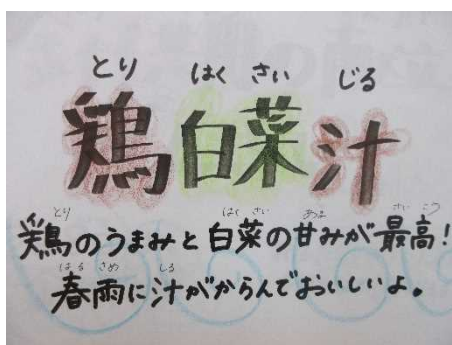 とり はく さい じる
鶏白菜汁
とり はく さい あま さい こう
鶏のうまみと白菜の甘みが最高!
はる さめ しる
春雨に汁がからんでおいしいよ。